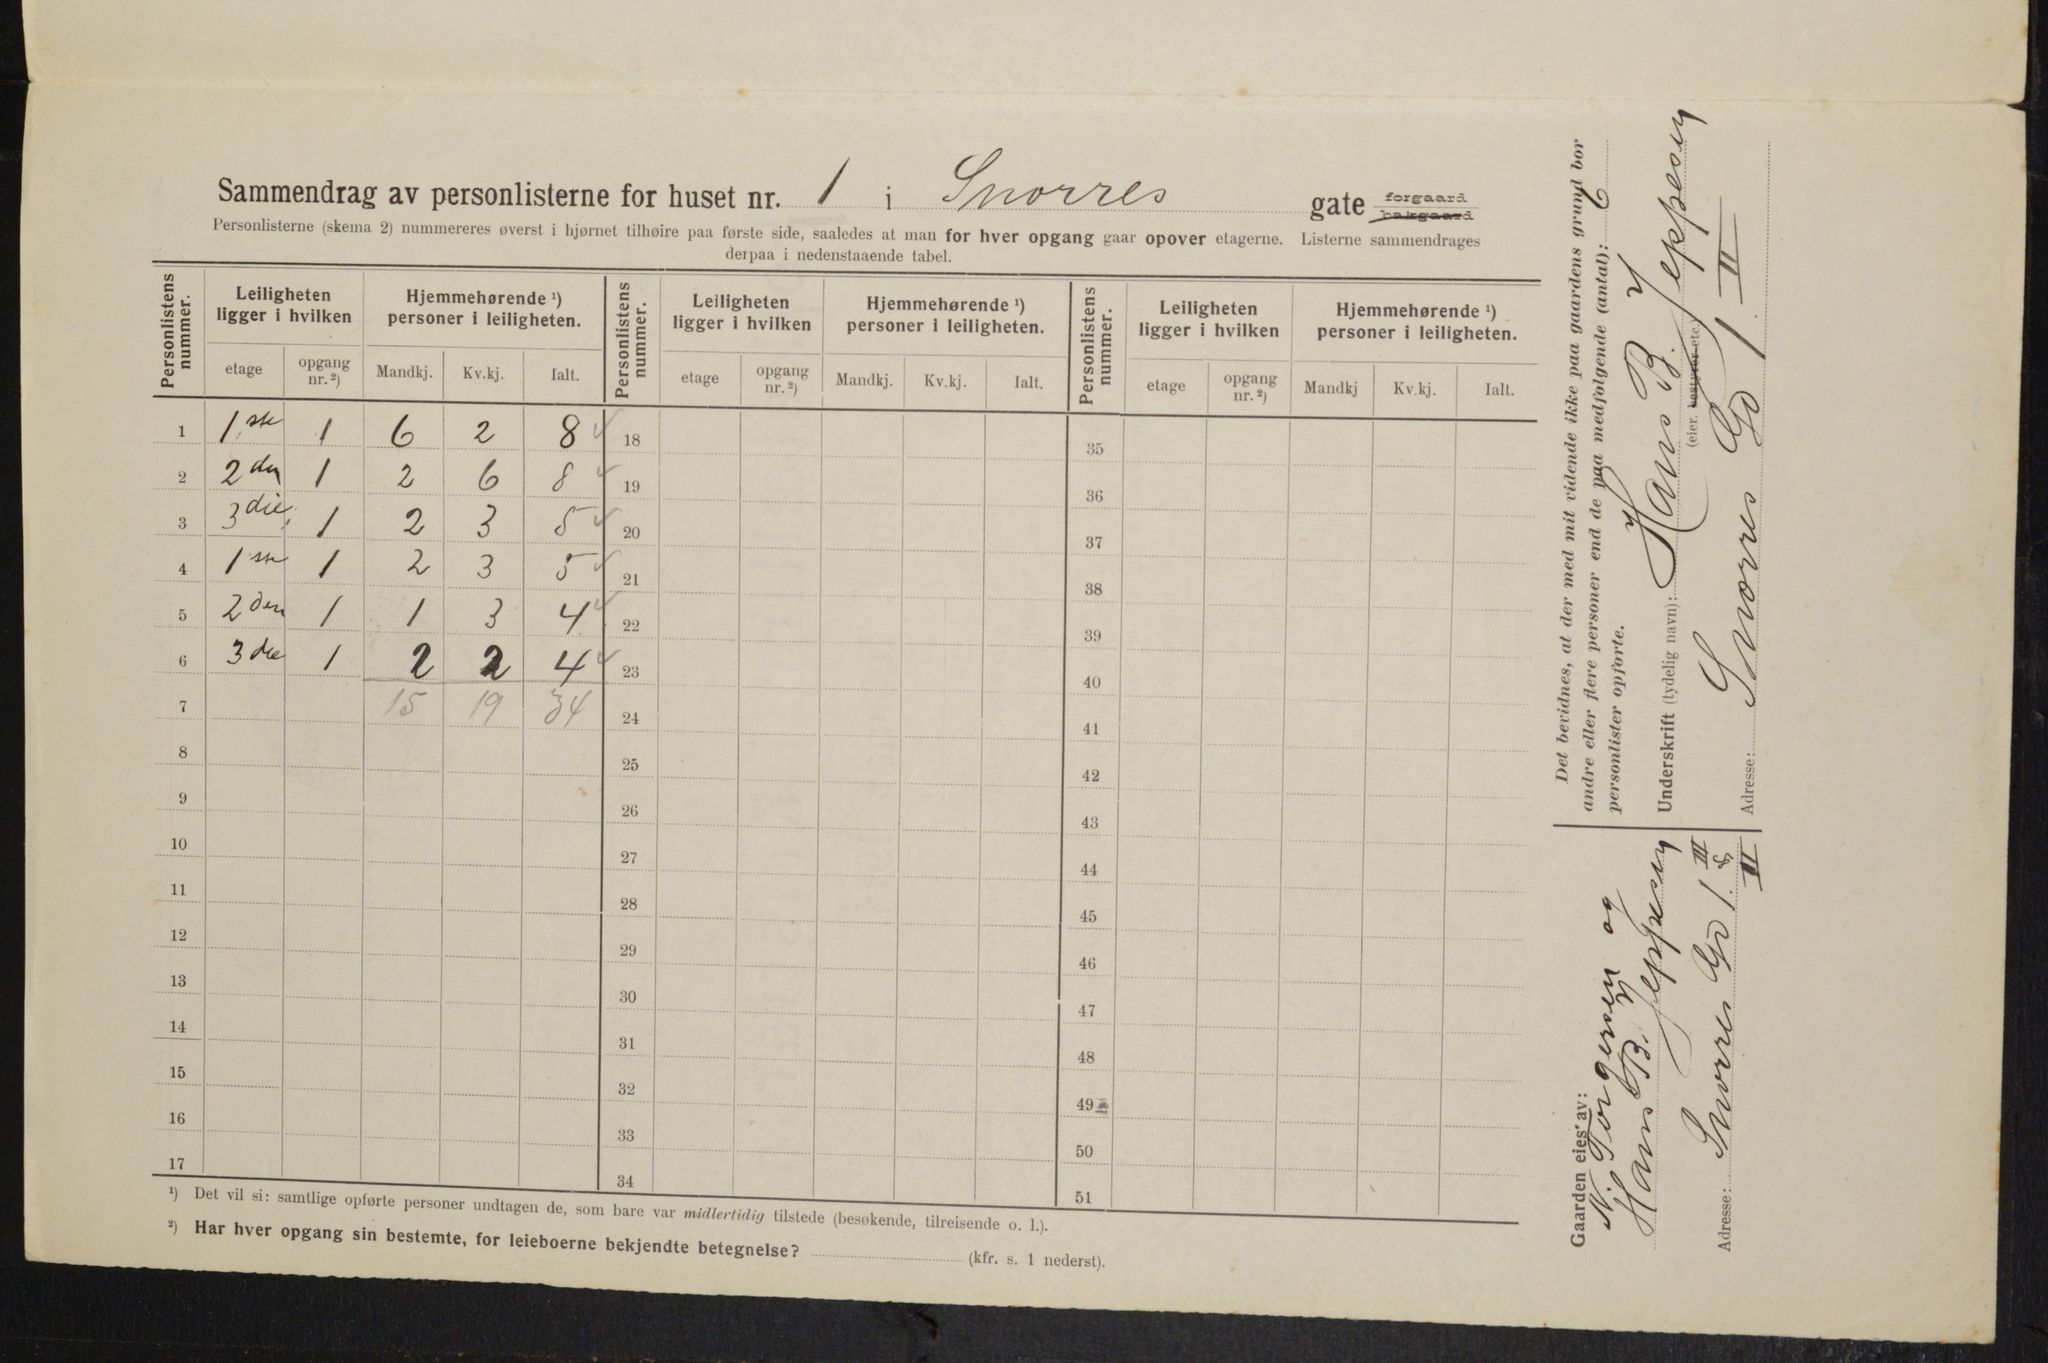 Sammendrag av personlisterne for huset nr. 1 i Snorres gate forgaard bakgaard
Personlisterne (skema 2) nummereres øverst i hjørnet tilhøire paa første side, saaledes at man for hver opgang gaar opover etagerne. Listerne sammendrages
derpaa i nedenstaaende tabel.
Personlistens nummer. Leiligheten ligger i hvilken Hjemmehørende ¹) personer i leiligheten. Personlistens nummer. Leiligheten ligger i hvilken Hjemmehørende ¹) personer i leiligheten. Personlistens nummer. Leiligheten ligger i hvilken Hjemmehørende ¹) personer i leiligheten.
etage opgang nr. ²) Mandkj. Kv.kj. Ialt. etage opgang nr. ²) Mandkj. Kv.kj. Ialt. etage opgang nr. ²) Mandkj Kv.kj. Ialt.
1 1.ste 1 6 2 8 18 35
2 2den 1 2 6 8 19 36
3 3die. 1 2 3 5 20 37
4 1ste 1 2 3 5 21 38
5 2den 1 1 3 4 22 39
6 3die 1 2 2 4 23 40
7 15 19 34 24 41
8 25 42
9 26 43
10 27 44
11 28 45
12 29 46
13 30 47
14 31 48
15 32 49
16 33 50
17 34 51
¹) Det vil si: samtlige opførte personer undtagen de, som bare var midlertidig tilstede (besøkende, tilreisende o. l.).
²) Har hver opgang sin bestemte, for leieboerne bekjendte betegnelse? (kfr. s. 1 nederst).
Det bevidnes, at der med mit vidende ikke paa gaardens grund bor
andre eller flere personer end de paa medfølgende (antal): 6
personlister opførte.
Underskrift (tydelig navn): Hans B. Jeppesen
(eier, bestyrer etc.)
Adresse: Snorres Gd 1 II
Gaarden eies av:
N. Torgersen og
Hans B. Jeppesen
Adresse: Snorres Gd 1. III & II